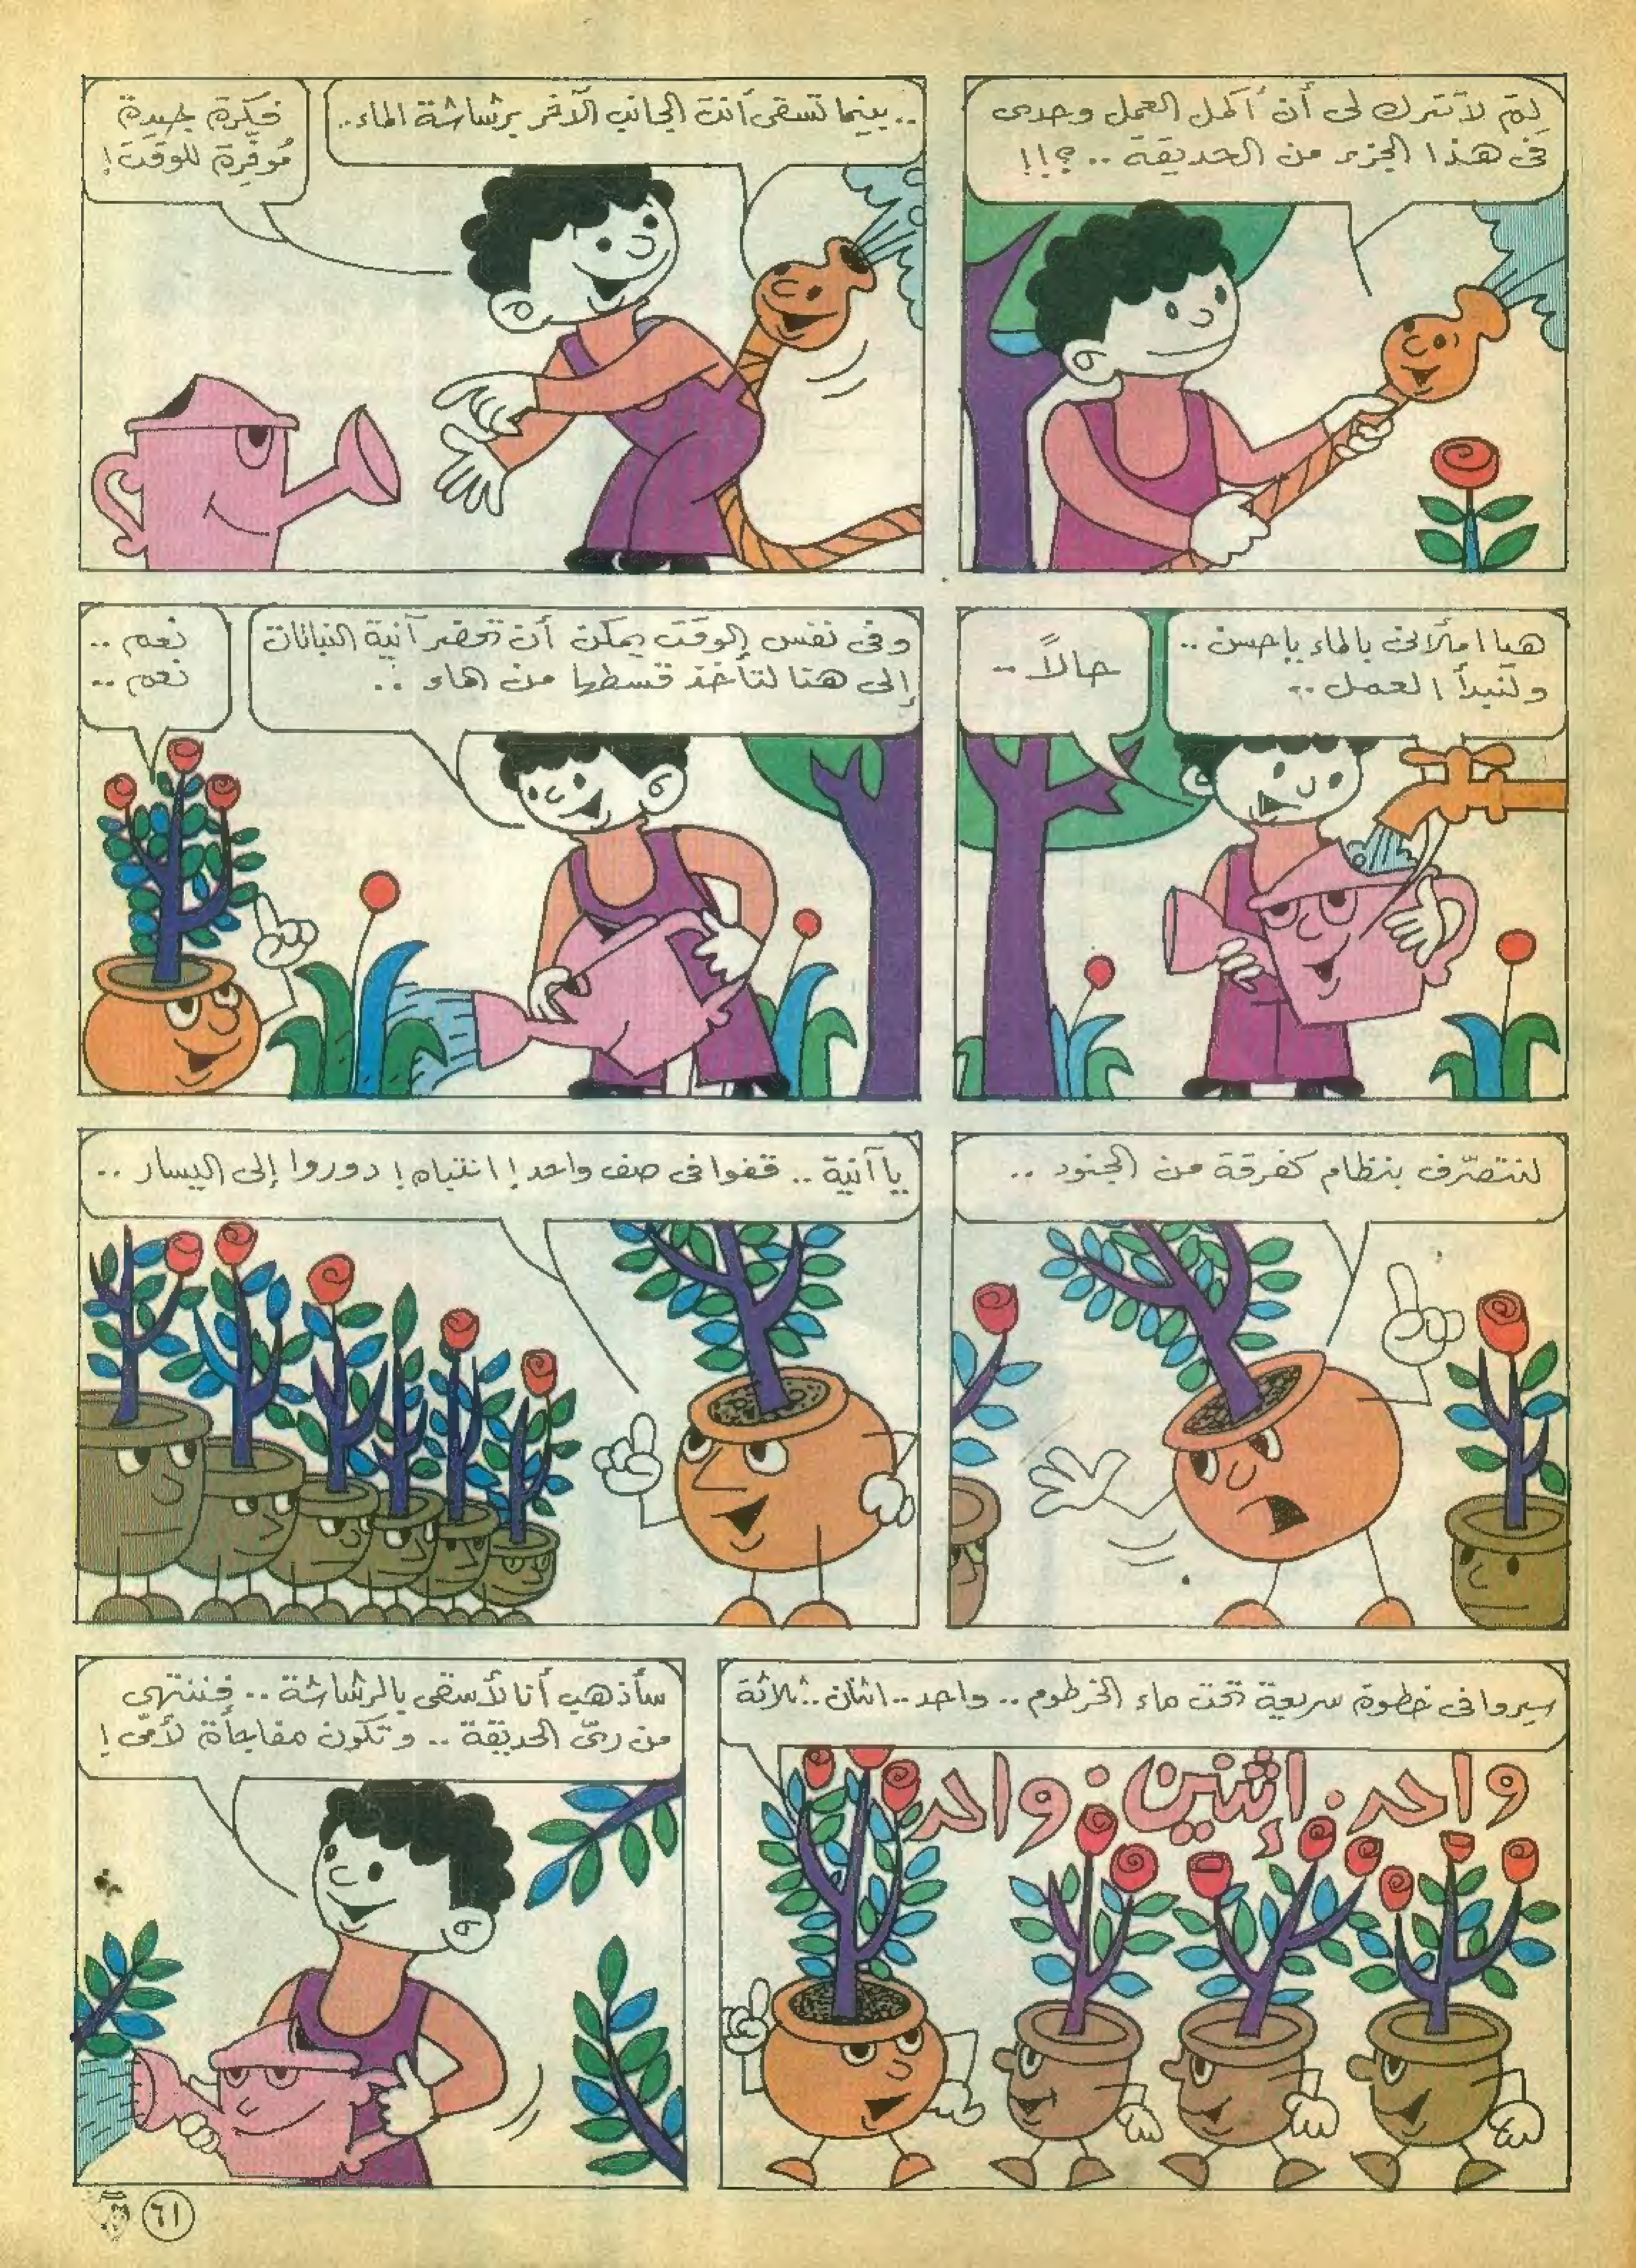 لِمَ لا تترك لى أن أكمل العمل وحدى
فى هذا الجزء من الحديقة .. ؟!!
.. بينما تسقى أنت الجانب الآخر برشاشة الماء ..
فكرة جيدة
مُوفّرة للوقت !
هيا املأنى بالماء ياحسن ..
ولنبدأ العمل ..
حالاً ..
وفى نفس الوقت يمكن أن تحضر آنية النباتات
إلى هنا لتأخذ قسطها من الماء ..
نعم ..
نعم ..
لنتصرّف بنظام كفرقة من الجنود ..
يا آنية .. قفوا فى صف واحد ! انتباه ! دوروا إلى اليسار ..
سيروا فى خطوة سريعة تحت ماء الخرطوم .. واحد .. اثنان .. ثلاثة
واحد . إثنين . واحد
سأذهب أنا لأسقى بالرشاشة .. فننتهى
من رىّ الحديقة .. وتكون مفاجأة لأمى !
٦١